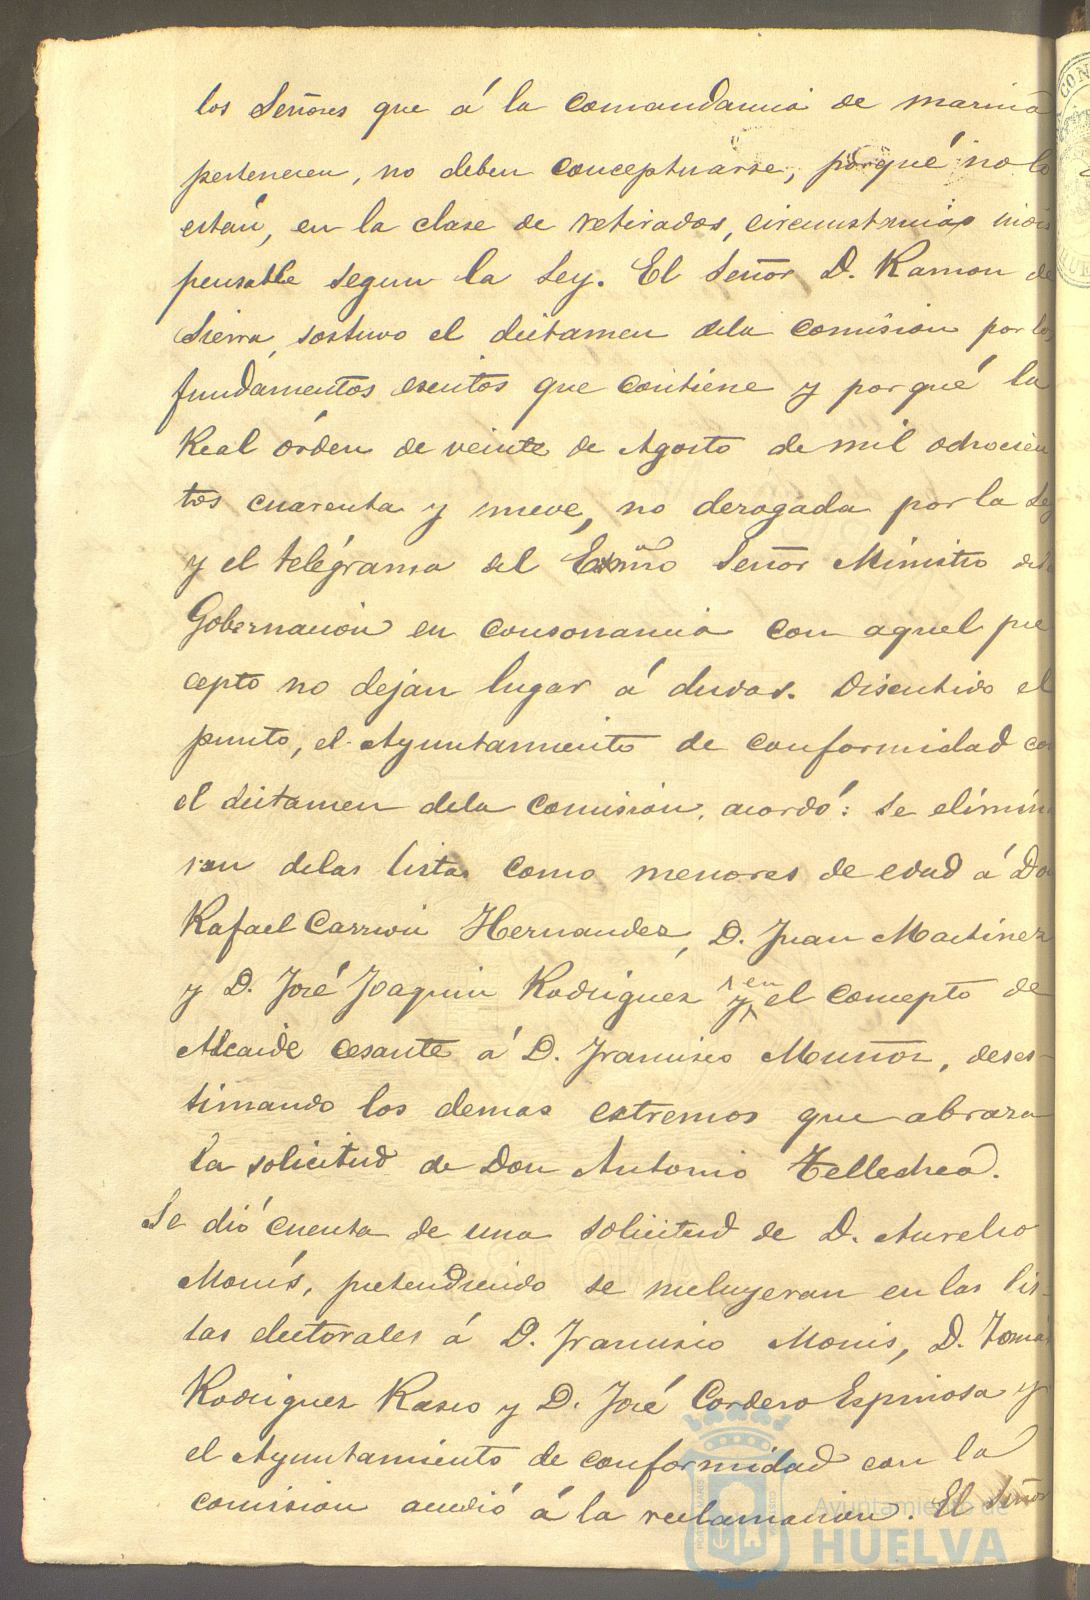 los Señores que á la Comandancia de marina
pertenecen, no deben conceptuarse, porqué no lo
están, en la clase de retirados, circunstancias indis
pensable segun la Ley. El Señor D. Ramon de
Sierra, sostuvo el dictamen dela Comision por los
fundamentos escritos que contiene y porqué la
Real órden de veinte de Agosto de mil ochocien
tos cuarenta y nueve, no derogada por la Ley
y el telégrama del Exmo Señor Ministro dela
Gobernacion en consonancia con aquel pre
cepto no dejan lugar á dudas. Discutido el
punto, el Ayuntamiento de conformidad con
el dictamen dela Comision, acordó: Se elimina
ran delas listas como menores de edad á Don
Rafael Carrion Hernandez, D. Juan Martinez
y D. José Joaquin Rodriguez y en el concepto de
Alcaide cesante á D. Francisco Muñoz, deses-
timando los demas extremos que abraza
la solicitud de Don Antonio Tellechea.
Se dió cuenta de una solicitud de D. Aurelio
Monís, pretendiendo se incluyeran en las lis-
tas electorales á D. Francisco Monis, D. Tomás
Rodriguez Rasco y D. José Cordero Espinosa y
el Ayuntamiento de conformidad con la
comision accedió á la reclamacion. El Señor
Ayuntamiento de
HUELVA